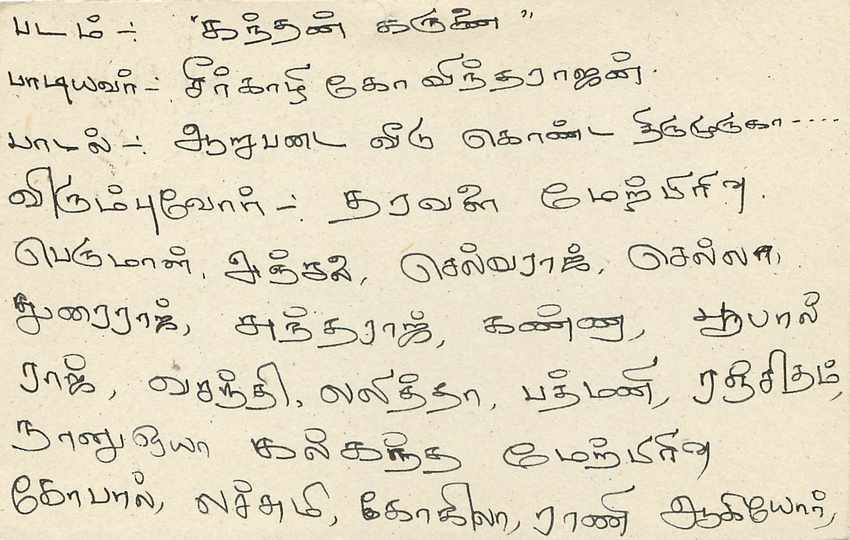 படம் -: "கந்தன் கருணை"
பாடியவர் -: சீர்காழி கோவிந்தராஜன்.
பாடல் -: ஆறுபடை வீடு கொண்ட திருமுருகா-----
விரும்புவோர் -: தரவளை மேற்பிரிவு.
பெருமாள், செல்வராஜ், செல்லா,
துரைராஜ், ஆனந்தராஜ், கண்ணு, ஆபால்
ராஜ், வசந்தி, லலித்தா, பத்மணி, ரஞ்சிதம்,
கல்கந்த மேற்பிரிவு
கோபால், லச்சுமி, கோகிலா, ராணி ஆகியோர்,